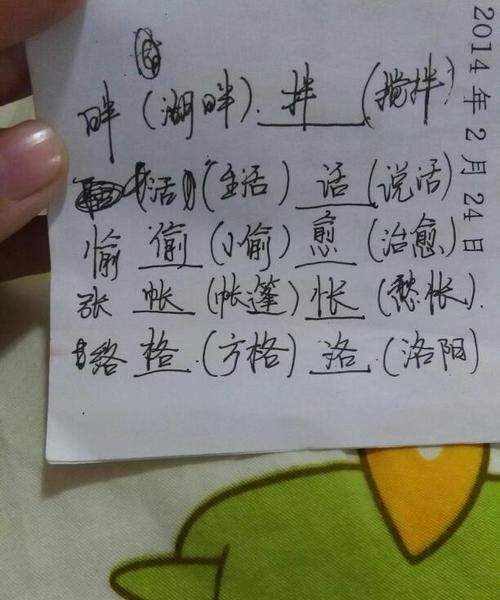 畔(湖畔). 拌 (搅拌)
活(生活) 话 (说话)
愉 偷 (小偷) 愈 (治愈)
张 帐 (帐篷) 怅 (愁怅).
络 格.(方格) 洛.(洛阳)
2014年2月24日